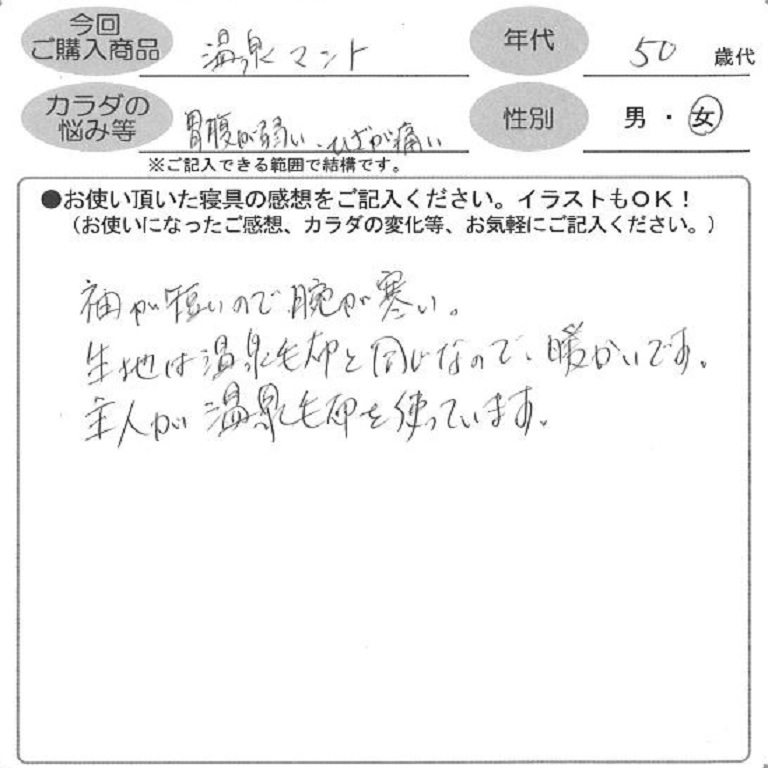 今回
ご購入商品
温泉マント
年代
50 歳代
カラダの
悩み等
胃腹が弱い、ひざが痛い
性別
男・女
※ご記入できる範囲で結構です。
●お使い頂いた寝具の感想をご記入ください。イラストもOK!
(お使いになったご感想、カラダの変化等、お気軽にご記入ください。)
袖が短いので腕が寒い。
生地は温泉毛布と同じなので、暖かいです。
主人が温泉毛布を使っています。